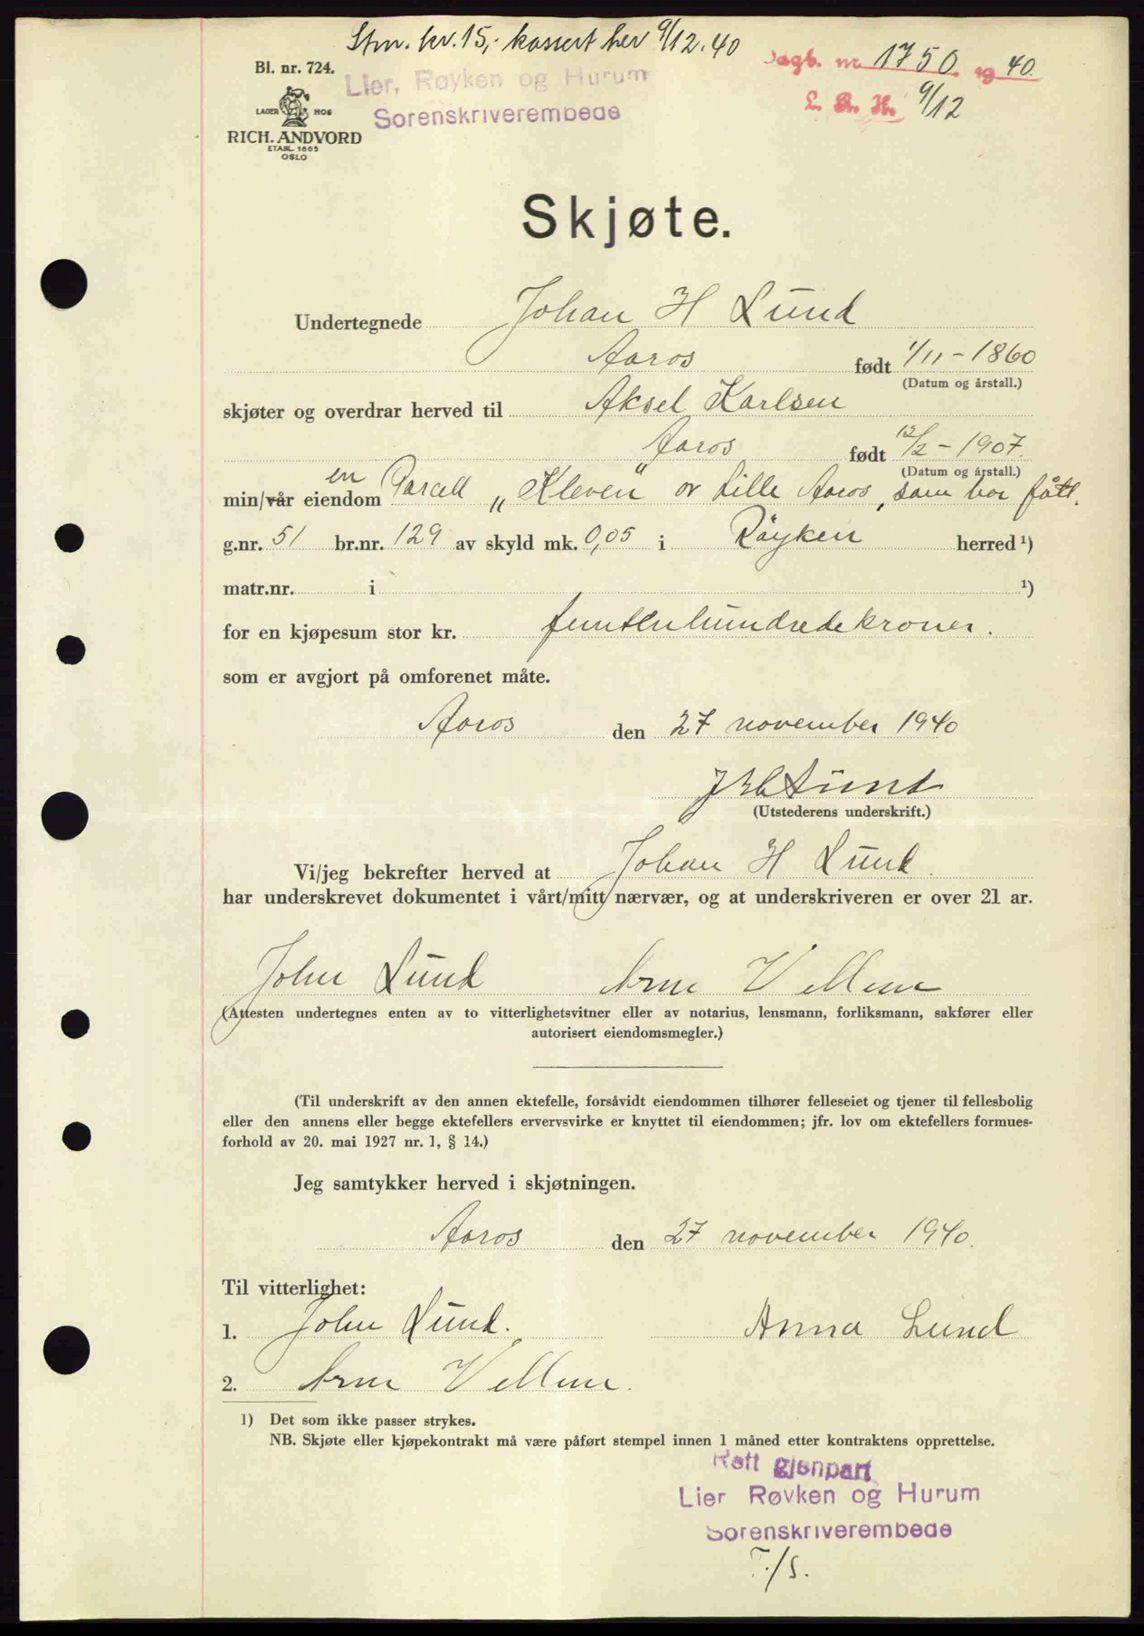 Stm. kr. 15,- kassert her 9/12.40
Bl. nr. 724.
LAGER HOS
RICH. ANDVORD
ETABL. 1865
OSLO
Lier, Røyken og Hurum
Sorenskriverembede
Dagb. nr. 1750 1940
L. R. H. 9/12
Skjøte.
Undertegnede Johan H Lund
Aaros født 1/11-1860
(Datum og årstall.)
skjøter og overdrar herved til Aksel Karlsen
Aaros født 12/2-1907.
(Datum og årstall.)
min/vår eiendom en Parcell „Kleven" av Lille Aaros, som har fått
g.nr. 51 br.nr. 129 av skyld mk. 0,05 i Röyken herred ¹)
matr.nr. i ¹)
for en kjøpesum stor kr. femtenhundredekroner.
som er avgjort på omforenet måte.
Aaros den 27 november 1940
J H Lund
(Utstederens underskrift.)
Vi/jeg bekrefter herved at Johan H Lund.
har underskrevet dokumentet i vårt/mitt nærvær, og at underskriveren er over 21 år.
John Lund Arne Vellene
(Attesten undertegnes enten av to vitterlighetsvitner eller av notarius, lensmann, forliksmann, sakfører eller
autorisert eiendomsmegler.)
(Til underskrift av den annen ektefelle, forsåvidt eiendommen tilhører felleseiet og tjener til fellesbolig
eller den annens eller begge ektefellers ervervsvirke er knyttet til eiendommen; jfr. lov om ektefellers formues-
forhold av 20. mai 1927 nr. 1, § 14.)
Jeg samtykker herved i skjøtningen.
Aaros den 27 november 1940.
Til vitterlighet:
1. John Lund. Anna Lund
2. Arne Vellene.
1) Det som ikke passer strykes.
NB. Skjøte eller kjøpekontrakt må være påført stempel innen 1 måned etter kontraktens opprettelse.
Rett gjenpart
Lier Røyken og Hurum
Sorenskriverembede